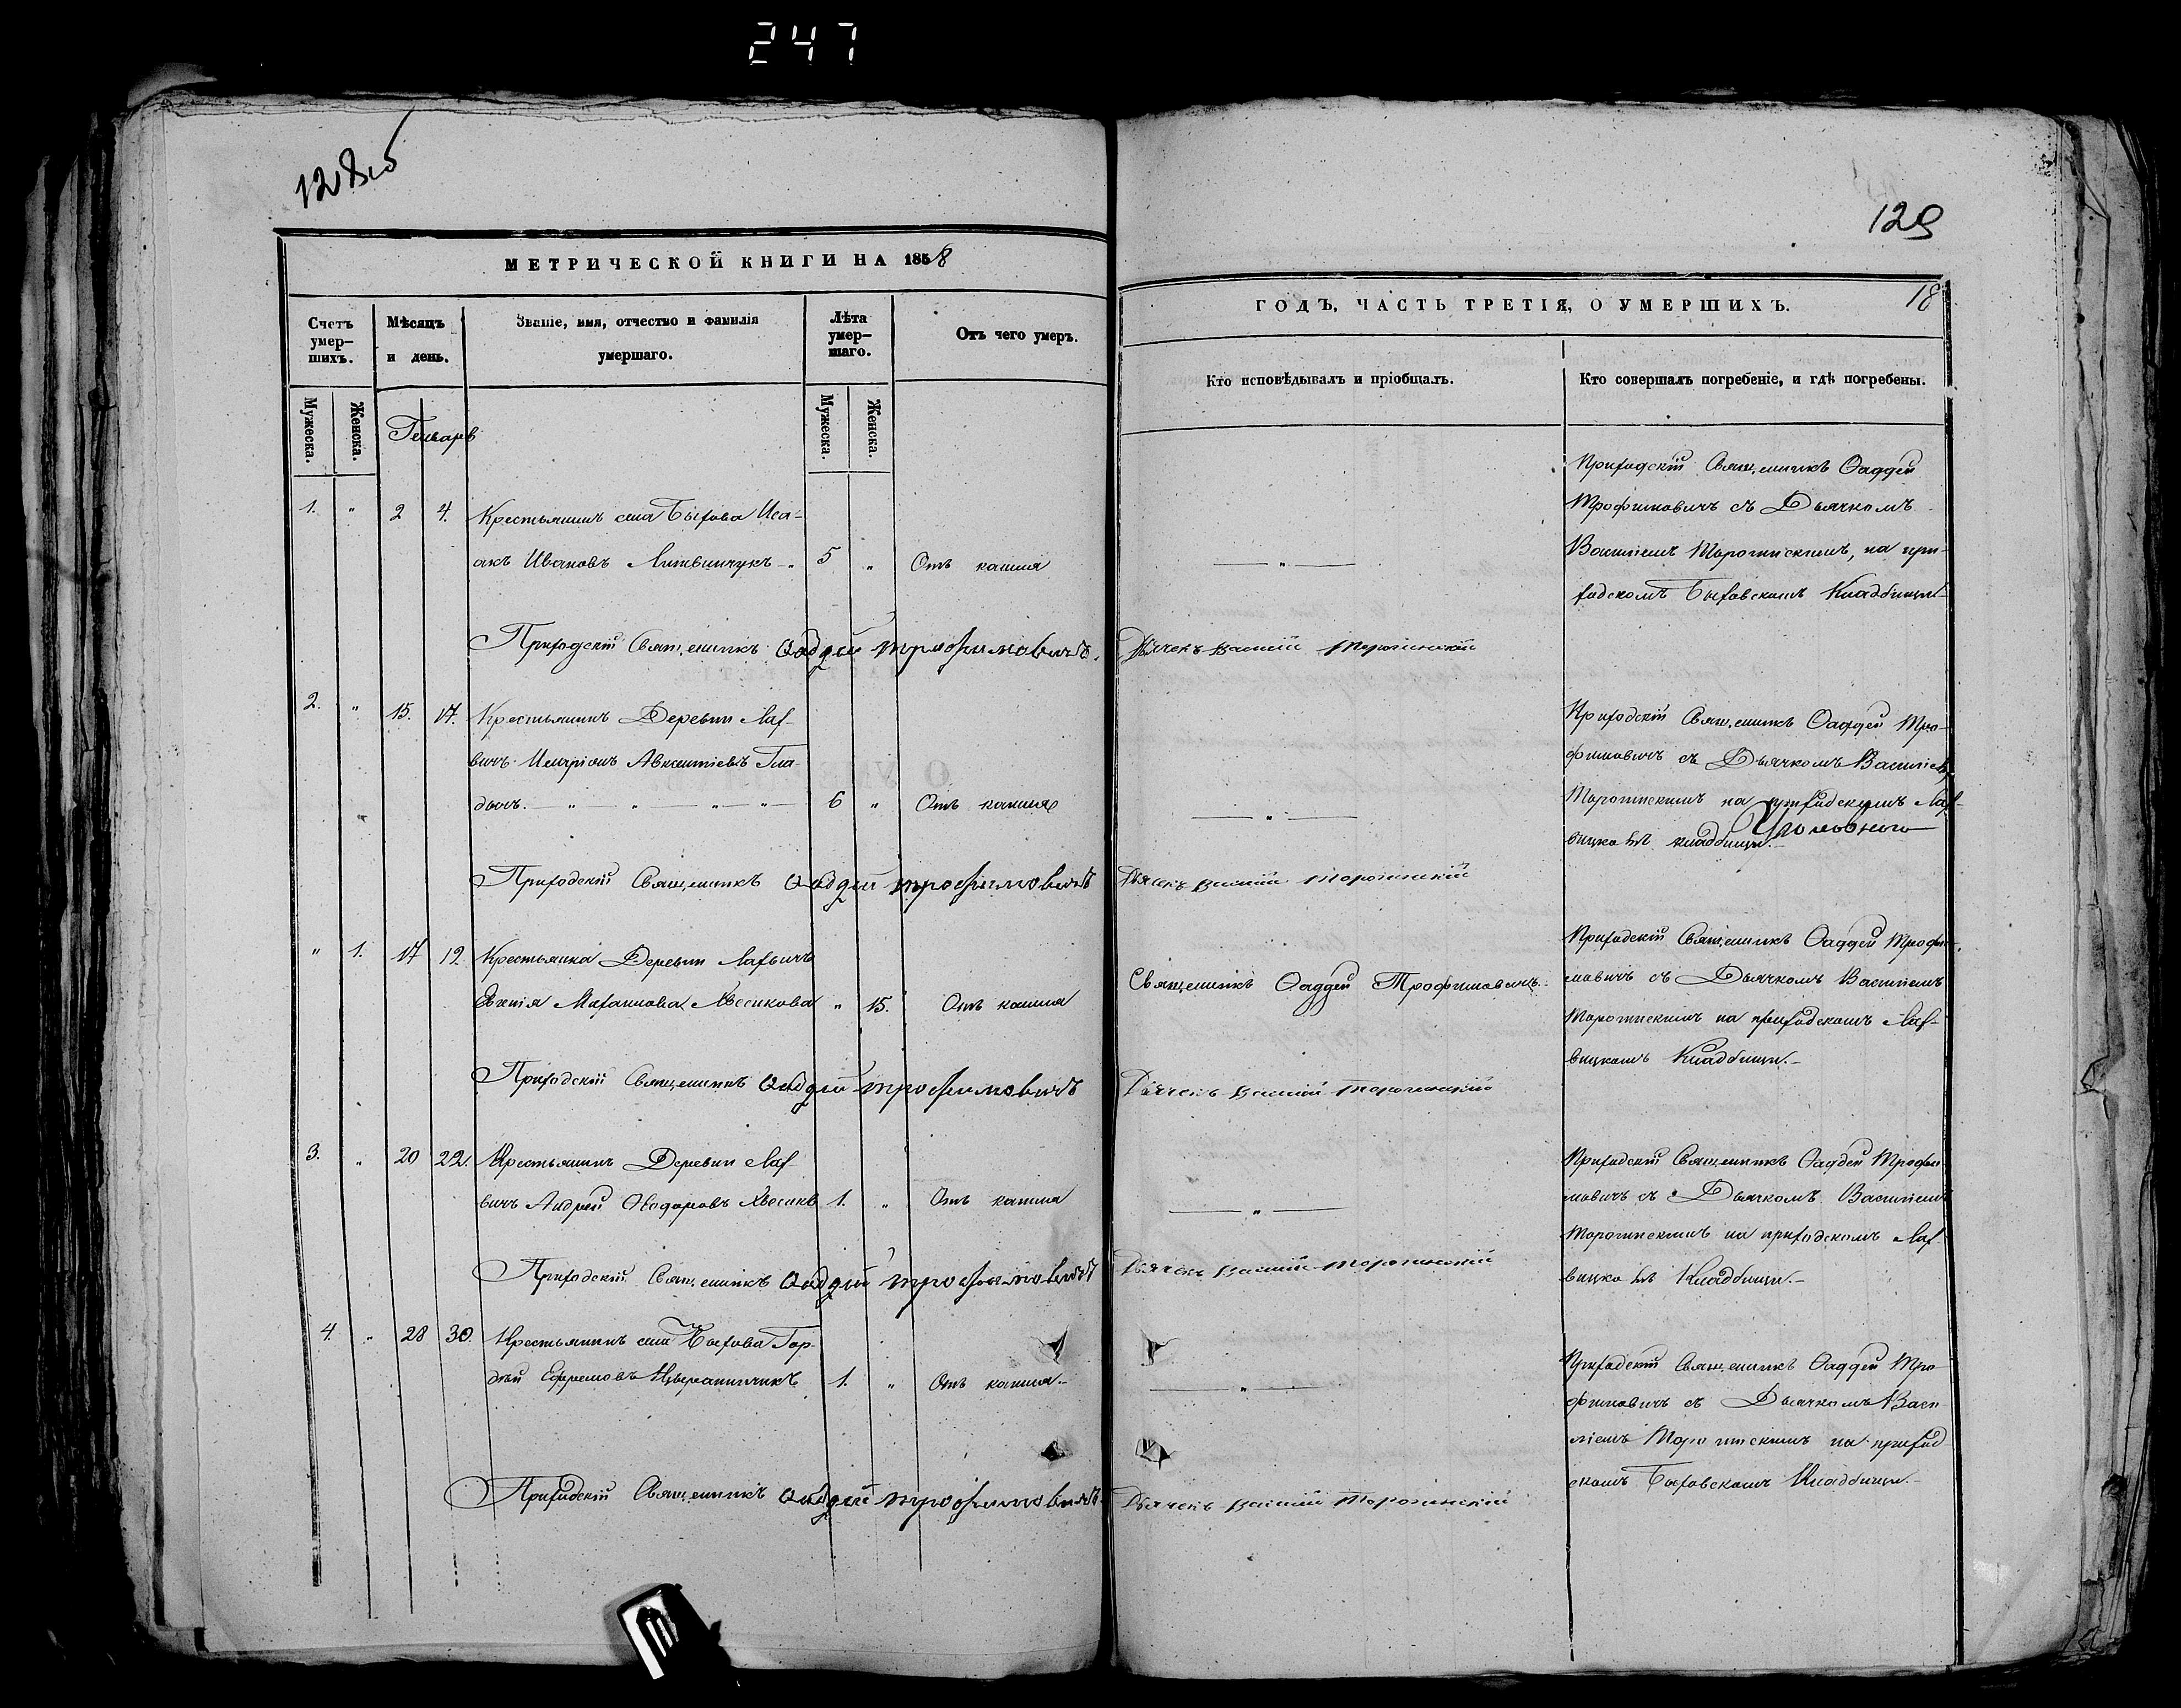 247
128об
129
МЕТРИЧЕСКОЙ КНИГИ НА 1858
ГОДЪ, ЧАСТЬ ТРЕТІЯ, О УМЕРШИХЪ.
18
Счетъ умер-шихъ.
Мѣсяцъ и день.
Званіе, имя, отчество и фамилія умершаго.
Лѣта умер-шаго.
Отъ чего умеръ.
Кто исповѣдывалъ и пріобщалъ.
Кто совершалъ погребеніе, и гдѣ погребены.
Мужеска.
Женска.
Мужеска.
Женска.
Генварь
1. " 2 4. Крестьянинъ села Быхова Иса-
акъ Ивановъ Литвинчукъ 5 " Отъ кашля
Приходскій Священникъ Фаддей
Трофимовичъ съ Дьячкомъ
Василіемъ Торогинскимъ, на при-
ходскомъ Быховскомъ Кладбищи
Приходскій Священникъ Фаддей Трофимовичъ.
Дьячекъ Василій Торогинскій
2. " 15. 17. Крестьянинъ Деревни Лах-
вичъ Авксентіевъ Гла-
дычъ. " " " " 6 " Отъ кашля
Приходскій Священникъ Фаддей Тро-
фимовичъ съ Дьячкомъ Василіемъ
Торогинскимъ на приходскомъ Лах-
вицкомъ кладбищи.
Приходскій Священникъ Фаддей Трофимовичъ
Дьячекъ Василій Торогинскій
" 1. 17 19. Крестьянка Деревни Лахвичъ
Михаилова Хвесикова " 15. Отъ кашля
Священникъ Фаддей Трофимовичъ.
Приходскій Священникъ Фаддей Трофи-
мовичъ съ Дьячкомъ Василіемъ
Торогинскимъ на приходскомъ Лах-
вицкомъ Кладбищи.
Приходскій Священникъ Фаддей Трофимовичъ
Дьячекъ Василій Торогинскій
3. " 20 22. Крестьянинъ Деревни Лах
вичъ Андрей Ѳедоровъ Хвесикъ 1. " Отъ кашля
Приходскій Священникъ Фаддей Трофи
мовичъ съ Дьячкомъ Василіемъ
Торогинскимъ на приходскомъ Лах
вицкомъ Кладбищи.
Приходскій Священникъ Фаддей Трофимовичъ
Дьячекъ Василій Торогинскій
4. " 28 30. Крестьянинъ села Быхова Гор-
дѣй Ефремовъ 1. " Отъ кашля.
Приходскій Священникъ Фаддей Тро
фимовичъ съ Дьячкомъ Васи
ліемъ Торогинскимъ на приход
скомъ Быховскомъ Кладбищи.
Приходскій Священникъ Фаддей Трофимовичъ
Дьячекъ Василій Торогинскій